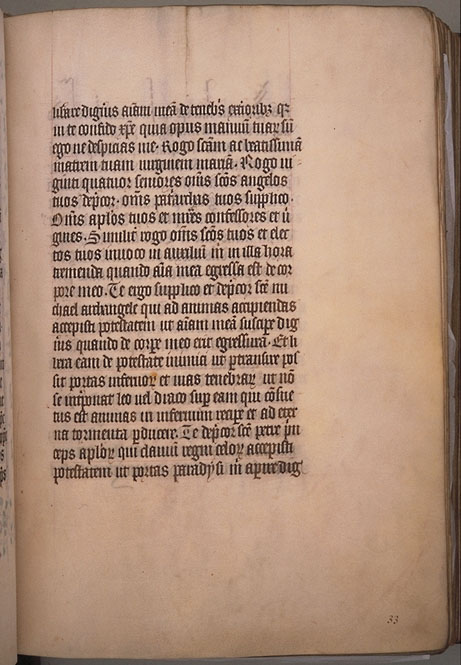 berare digneris aīam meā de tenebris exterioribꝫ qr
in te confido xp̄e quia opus manuū tuaꝝ sū
ego ne despicias me. Rogo scām ac beatissimā
matrem tuam virginem mariā. Rogo vi
ginti quatuor seniores om̄s scōs angelos
tuos dep̄cor. om̄s patriarchas tuos supplico.
Om̄s apl̄os tuos et mr̄es confessores et v̄
gines. Similiṫ rogo om̄s scōs tuos et elec
tos tuos inuoco in auxiliū m̄ in illa hora
tremenda quando aīa mea egressa est de cor
pore meo. Te ergo supplico et dep̄cor scē mi
chael archangele qui ad animas accipiendas
accepisti potestatem ut aīam meā suscipe dig
n̄is quando de corpe meo erit egressura. Et li
bera eam de potestate inimici ut p̄transire pos
sit portas infernoꝝ et vias tenebraꝝ ut nō
se opponat leo vel draco sup eam qui cōsue
tus est animas in infernum recipe et ad eter
na tormenta pducere. Te dep̄cor scē petre pn̄
ceps apl̄oꝝ qui clauim regni celoꝝ accepisti
potestatem ut portas paradysi m̄ aperire dig
33